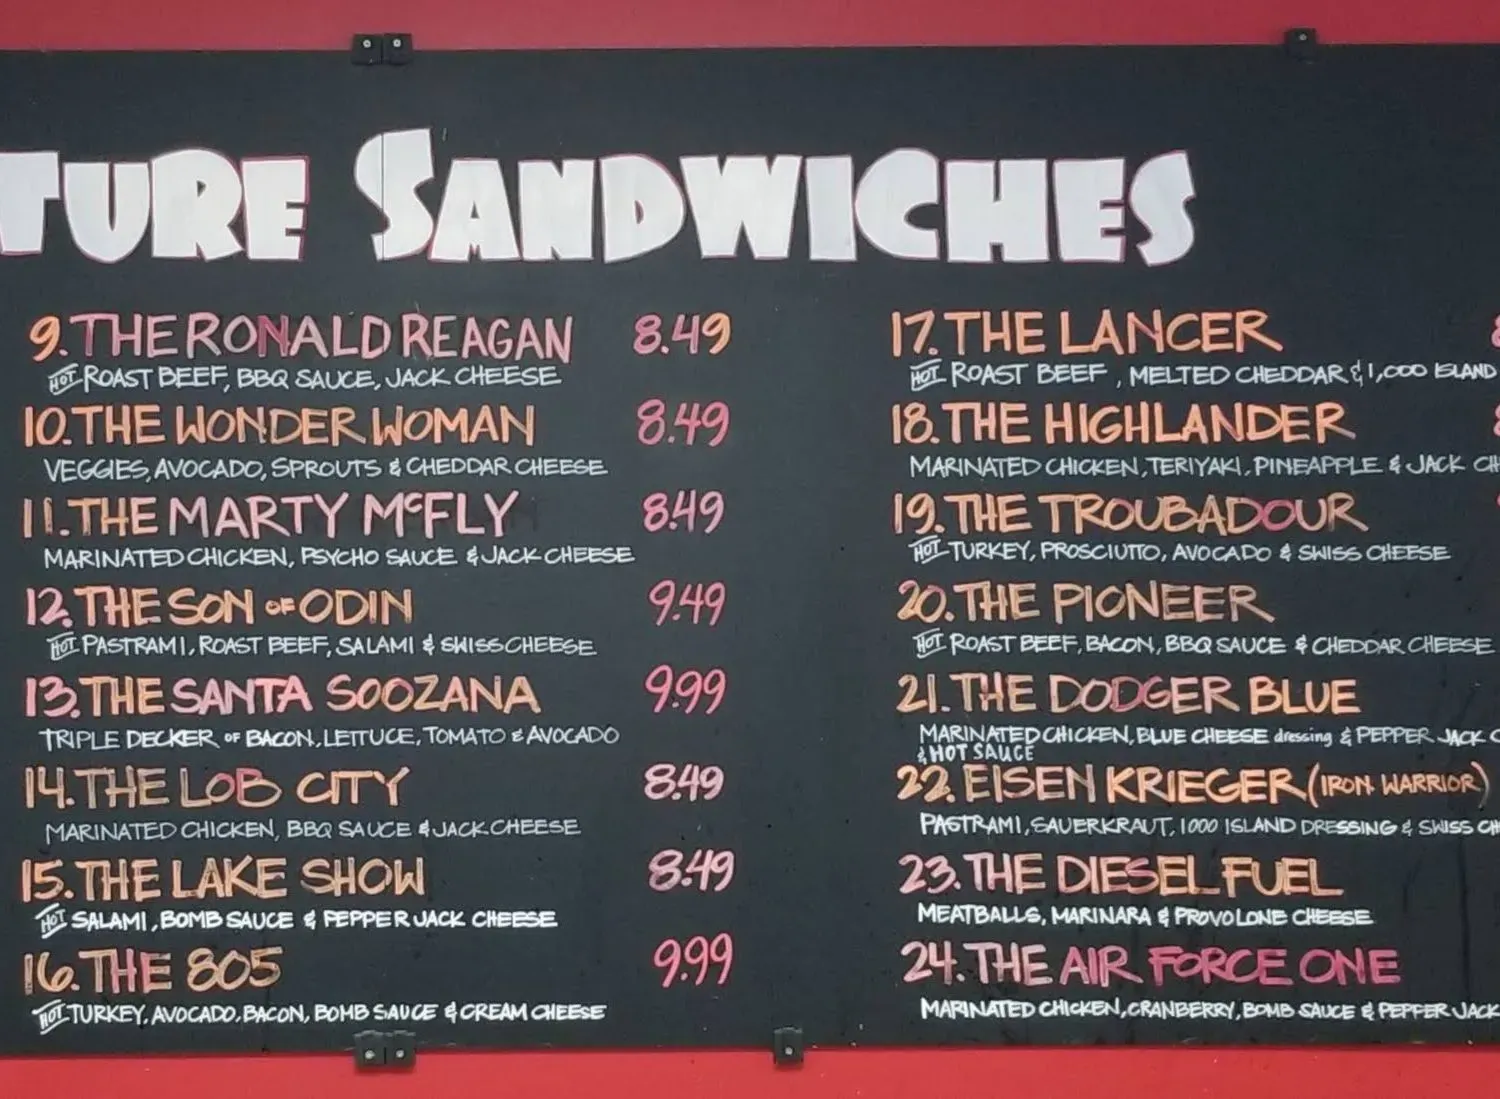 TURE SANDWICHES
9. THE RONALD REAGAN 8.49
HOT ROAST BEEF, BBQ SAUCE, JACK CHEESE
10. THE WONDER WOMAN 8.49
VEGGIES, AVOCADO, SPROUTS & CHEDDAR CHEESE
11. THE MARTY McFLY 8.49
MARINATED CHICKEN, PSYCHO SAUCE & JACK CHEESE
12. THE SON OF ODIN 9.49
HOT PASTRAMI, ROAST BEEF, SALAMI & SWISS CHEESE
13. THE SANTA SOOZANA 9.99
TRIPLE DECKER OF BACON, LETTUCE, TOMATO & AVOCADO
14. THE LOB CITY 8.49
MARINATED CHICKEN, BBQ SAUCE & JACK CHEESE
15. THE LAKE SHOW 8.49
HOT SALAMI, BOMB SAUCE & PEPPER JACK CHEESE
16. THE 805 9.99
HOT TURKEY, AVOCADO, BACON, BOMB SAUCE & CREAM CHEESE
17. THE LANCER
HOT ROAST BEEF, MELTED CHEDDAR & 1,000 ISLAND
18. THE HIGHLANDER
MARINATED CHICKEN, TERIYAKI, PINEAPPLE & JACK CH
19. THE TROUBADOUR
HOT TURKEY, PROSCIUTTO, AVOCADO & SWISS CHEESE
20. THE PIONEER
HOT ROAST BEEF, BACON, BBQ SAUCE & CHEDDAR CHEESE
21. THE DODGER BLUE
MARINATED CHICKEN, BLUE CHEESE dressing & PEPPER JACK C
& HOT SAUCE
22. EISEN KRIEGER (IRON WARRIOR)
PASTRAMI, SAUERKRAUT, 1000 ISLAND DRESSING & SWISS CH
23. THE DIESEL FUEL
MEATBALLS, MARINARA & PROVOLONE CHEESE
24. THE AIR FORCE ONE
MARINATED CHICKEN, CRANBERRY, BOMB SAUCE & PEPPER JACK